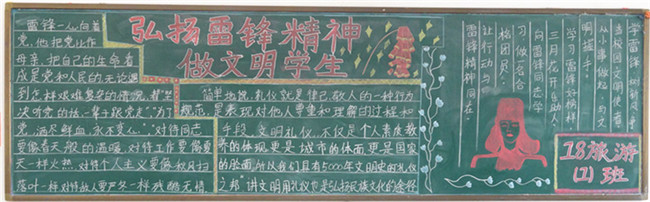 弘扬雷锋精神
做文明学生
雷锋一人,向着
党,他把党比作
母亲,把自己的生命看
成是党和人民的,无论遇
到怎样艰难复杂的情况,都坚
决听党的话,一辈子跟党走",为了
党,洒尽鲜血,永不变心。"对待同志
要像春天般的温暖,对待工作要像夏
天一样火热,对待个人主义要像秋风扫
落叶一样,对待敌人要严冬一样残酷无情
简单地说,礼仪就是律己,敬人的一种行为
规范,是表现对他人尊重和理解的过程和
手段。文明礼仪,不仅是个人素质教
养的体现,更是城市的体面,更是国家
的脸面,所以我们具有5000年文明史的"礼仪
之邦",讲文明用礼仪也是弘扬民族文化的途径
学雷锋树新风
从小事做起
文明握手
学习雷锋好榜样
三月花开
向雷锋同志学
习做一名合
格团员
让行动与
雷锋精神同在
18旅游
(1)班